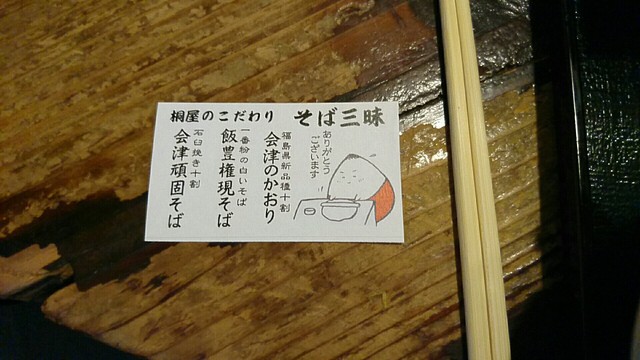 桐屋のこだわり そば三昧
ありがとう
ございます
福島県新品種十割
会津のかおり
一番粉の白いそば
飯豊権現そば
石臼挽き十割
会津頑固そば